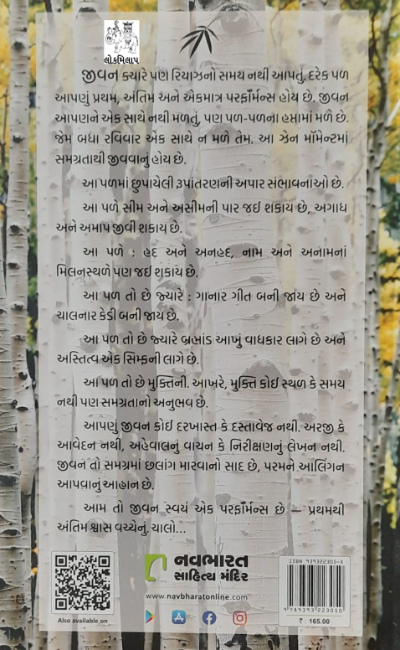 લોકમિલાપ
જીવન ક્યારે પણ રિયાઝનો સમય નથી આપતું, દરેક પળ
આપણું પ્રથમ, અંતિમ અને એકમાત્ર પરફૉર્મન્સ હોય છે. જીવન
આપણને એક સાથે નથી મળતું, પણ પળ-પળના હપ્તામાં મળે છે.
જેમ બધા રવિવાર એક સાથે ન મળે તેમ. આ ઝેન મૉમેન્ટમાં
સમગ્રતાથી જીવવાનું હોય છે.
આ પળમાં છુપાયેલી રૂપાંતરણની અપાર સંભાવનાઓ છે.
આ પળે સીમ અને અસીમની પાર જઈ શકાય છે, અગાધ
અને અમાપ જીવી શકાય છે.
આ પળે : હદ અને અનહદ, નામ અને અનામનાં
મિલનસ્થળે પણ જઈ શકાય છે.
આ પળ તો છે જ્યારે : ગાનાર ગીત બની જાય છે અને
ચાલનાર કેડી બની જાય છે.
આ પળ તો છે જ્યારે બ્રહ્માંડ આખું વાદ્યકાર લાગે છે અને
અસ્તિત્વ એક સિમ્ફની લાગે છે.
આ પળ તો છે મુક્તિની. આખરે, મુક્તિ કોઈ સ્થળ કે સમય
નથી પણ સમગ્રતાનો અનુભવ છે.
આપણું જીવન કોઈ દરખાસ્ત કે દસ્તાવેજ નથી. અરજી કે
આવેદન નથી, અહેવાલનું વાચન કે નિરીક્ષણનું લેખન નથી.
જીવન તો સમગ્રમાં છલાંગ મારવાનો સાદ છે, પરમને આલિંગન
આપવાનું આહ્વાન છે.
આમ તો જીવન સ્વયં એક પરફૉર્મન્સ છે — પ્રથમથી
અંતિમ શ્વાસ વચ્ચેનું. ચાલો...
નવભારત
સાહિત્ય મંદિર
www.navbharatonline.com
Also available on
₹ 165.00